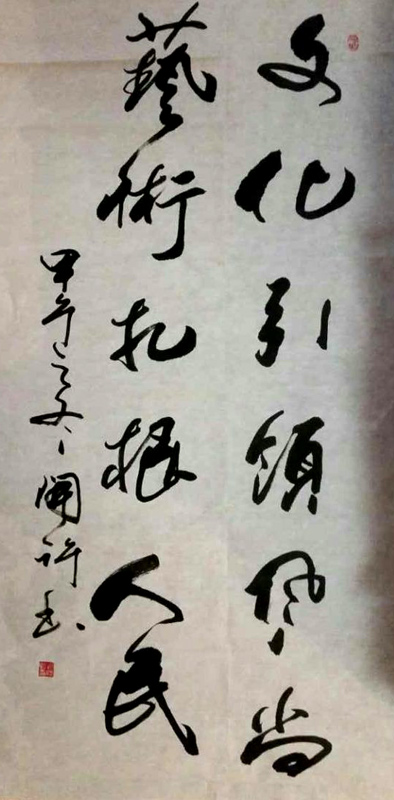 文化引領風尚
藝術扎根人民
甲午之冬開許書